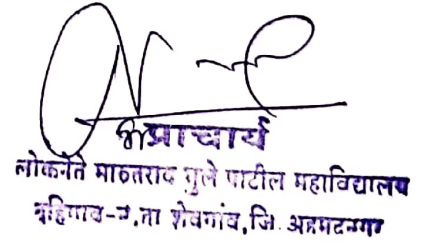 प्राचार्य
लोकनेते मारुतराव घुले पाटील महाविद्यालय
दहिगाव-ने, ता शेवगांव, जि. अहमदनगर